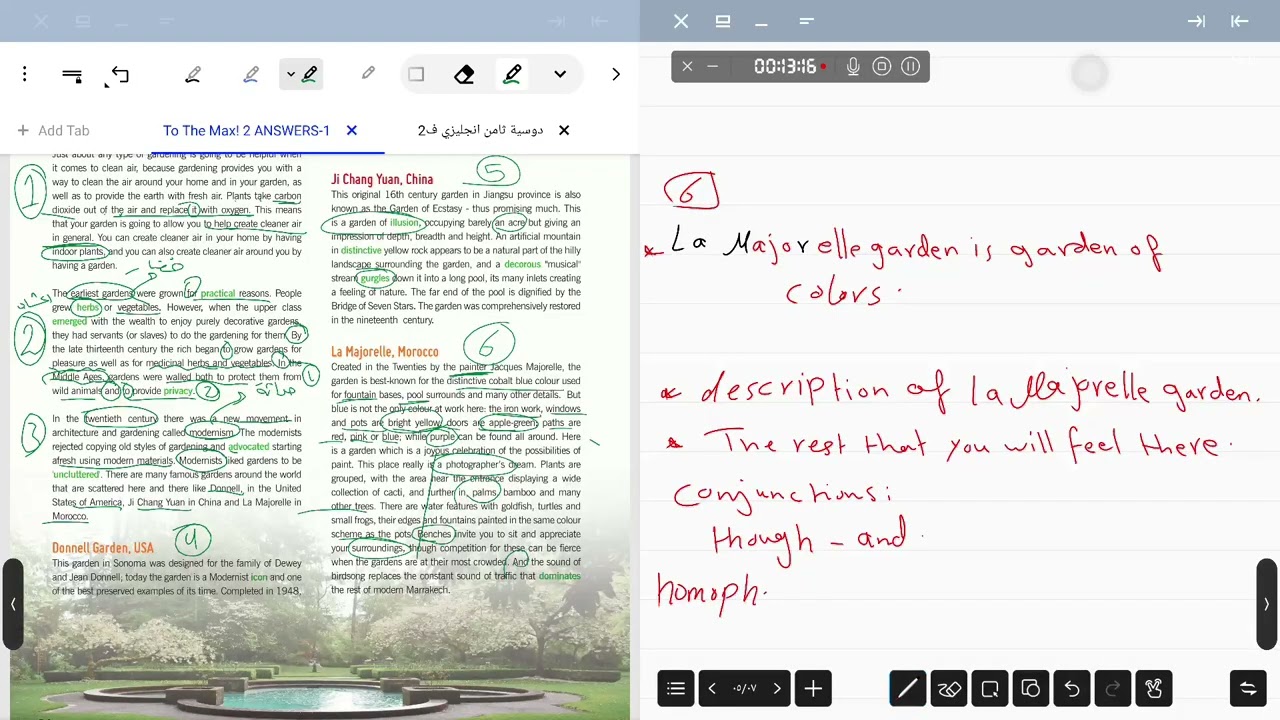 00:13:16
+ Add Tab
To The Max! 2 ANSWERS-1
دوسية ثامن انجليزي ف2
Just about any type of gardening is going to be helpful when
it comes to clean air, because gardening provides you with a
way to clean the air around your home and in your garden, as
well as to provide the earth with fresh air. Plants take carbon
dioxide out of the air and replace it with oxygen. This means
that your garden is going to allow you to help create cleaner air
in general. You can create cleaner air in your home by having
indoor plants, and you can also create cleaner air around you by
having a garden.
1
The earliest gardens were grown for practical reasons. People
grew herbs or vegetables. However, when the upper class
emerged with the wealth to enjoy purely decorative gardens,
they had servants (or slaves) to do the gardening for them. By
the late thirteenth century the rich began to grow gardens for
pleasure as well as for medicinal herbs and vegetables. In the
Middle Ages, gardens were walled both to protect them from
wild animals and to provide privacy.
2
1
2
In the twentieth century there was a new movement in
architecture and gardening called modernism. The modernists
rejected copying old styles of gardening and advocated starting
afresh using modern materials. Modernists liked gardens to be
'uncluttered'. There are many famous gardens around the world
that are scattered here and there like Donnell, in the United
States of America, Ji Chang Yuan in China and La Majorelle in
Morocco.
3
Donnell Garden, USA
4
This garden in Sonoma was designed for the family of Dewey
and Jean Donnell; today the garden is a Modernist icon and one
of the best preserved examples of its time. Completed in 1948,
5
Ji Chang Yuan, China
This original 16th century garden in Jiangsu province is also
known as the Garden of Ecstasy - thus promising much. This
is a garden of illusion, occupying barely an acre but giving an
impression of depth, breadth and height. An artificial mountain
in distinctive yellow rock appears to be a natural part of the hilly
landscape surrounding the garden, and a decorous "musical"
stream gurgles down it into a long pool, its many inlets creating
a feeling of nature. The far end of the pool is dignified by the
Bridge of Seven Stars. The garden was comprehensively restored
in the nineteenth century.
6
La Majorelle, Morocco
Created in the Twenties by the painter Jacques Majorelle, the
garden is best-known for the distinctive cobalt blue colour used
for fountain bases, pool surrounds and many other details. But
blue is not the only colour at work here: the iron work, windows
and pots are bright yellow, doors are apple-green, paths are
red, pink or blue; while purple can be found all around. Here
is a garden which is a joyous celebration of the possibilities of
paint. This place really is a photographer's dream. Plants are
grouped, with the area near the entrance displaying a wide
collection of cacti, and further in, palms, bamboo and many
other trees. There are water features with goldfish, turtles and
small frogs, their edges and fountains painted in the same colour
scheme as the pots. Benches invite you to sit and appreciate
your surroundings, though competition for these can be fierce
when the gardens are at their most crowded. And the sound of
birdsong replaces the constant sound of traffic that dominates
the rest of modern Marrakech.
6
La Majorelle garden is garden of
colors.
description of la Majorelle garden.
The rest that you will feel there.
Conjunctions:
though - and
homoph.
٠٥/٠٧